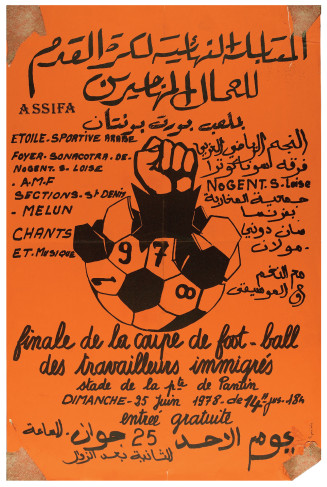 المقابلة النهائية لكرة القدم
للعمال المهاجرين
ASSIFA
بملعب بورت بونتان
ETOILE-SPORTIVE ARABE
FOYER-SONACOTRA-DE-
NOGENT-S-LOISE
-A-M-F
SECTIONS-St DENIS
-MELUN
CHANTS
ET-MUSIQUE
النجم الرياضي العربي
فرقة لصوناكوترا
NOGENT-S-Loise
جمعية المغاربة
بفرنسا
سان دوني
-مولان-
مع النغم
و الموسيقى
1978
finale de la coupe de foot-ball
des travailleurs immigrés
stade de la pte de Pantin
DIMANCHE-25 juin 1978-de 14H jus. 18h
entrée gratuite
يوم الاحد 25 جوان-للعامة
للثانية بعد الزوال